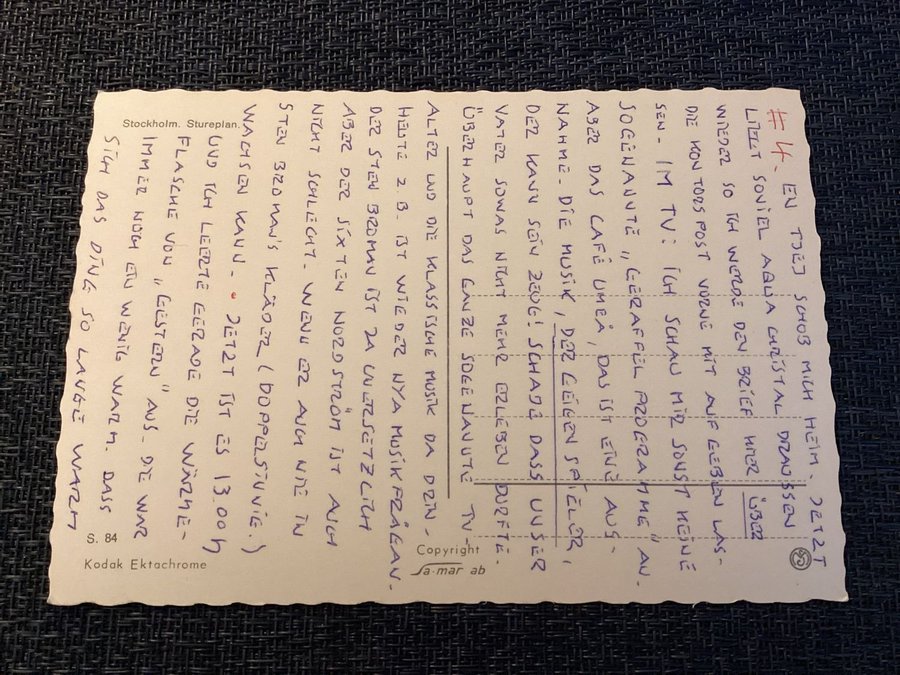 #4. EN TJEJ SCHOß MICH HEIM. JETZT
LIEGT SOVIEL AQUA CHRISTAL DRAUSSEN
WIEDER SO ICH WERDE DEN BRIEF HIER ÜBER
DIE KONTORSPOST VORNE MIT AUFGEBEN LAS-
SEN. IM TV: ICH SCHAU MIR SONST KEINE
SOGENANTE „GERAFFEL PROGRAMME" AN.
ABER DAS CAFÉ UMRÅ, DAS IST EINE AUS-
NAHME. DIE MUSIK, DER GEIGEN SPIELER,
DER KANN SEIN ZEUG! SCHADE DASS UNSER
VATER SOWAS NICHT MEHR ERLEBEN DURFTE.
ÜBERHAUPT DAS GANZE SOGENANNTE TV-
ALTER UND DIE KLASSISCHE MUSIK DA DRIN-
HEUTE Z.B. IST WIEDER NYA MUSIKFRÅGAN.
DER STEN BROMAN IST ZA UNERSETZLICH
ABER DER SIXTEN NORDSTRÖM IST AUCH
NICHT SCHLECHT. WENN ER AUCH NIE IN
STEN BROMAN'S KLÄDER (DOPPELSINNIG.)
WACHSEN KAN. JETZT IST ES 13.00h
UND ICH LEERTE GERADE DIE WÄRME-
FLASCHE VON „GESTERN" AUS. DIE WAR
IMMER NOCH EIN WENIG WARM. DASS
SICH DAS DING SO LANGE WARM
Stockholm. Stureplan.
S. 84
Kodak Ektachrome
Copyright
Sa-mar ab